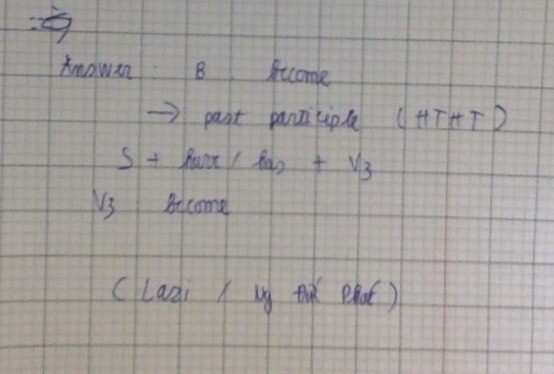 Answer : B become
→ past participle (HTHT)
S + have / has + V3
V3 : become
(Lazi / Ng Đức Phát)